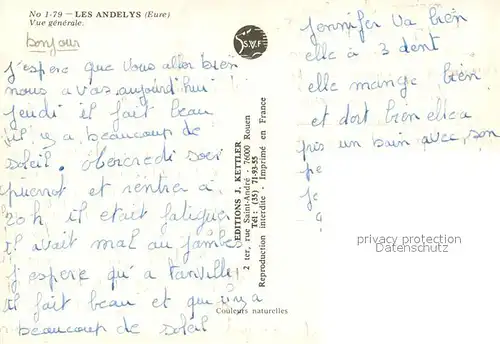 No 1-79 - LES ANDELYS (Eure)
Vue générale.
bonjour
j'espere que vous aller bien
nous a vas aujourd'hui
jeudi il fait beau
il y a beaucoup de
soleil. mercredi soir
pierrot et rentrer a
20h il etait fatiguer
il avait mal au jambe
j'espere qu'a tanville
il fait beau et qu'il y a
beaucoup de soleil
S.V.F
EDITIONS J. KETTLER
2 ter, rue Saint-André - 76000 Rouen
Tél.: (35) 71-93-55
Reproduction interdite - Imprimé en France
Couleurs naturelles
Jennifer va bien
elle a 3 dent
elle mange bien
et dort bien elle a
pris un bain avec son
pe
je
privacy protection
Datenschutz